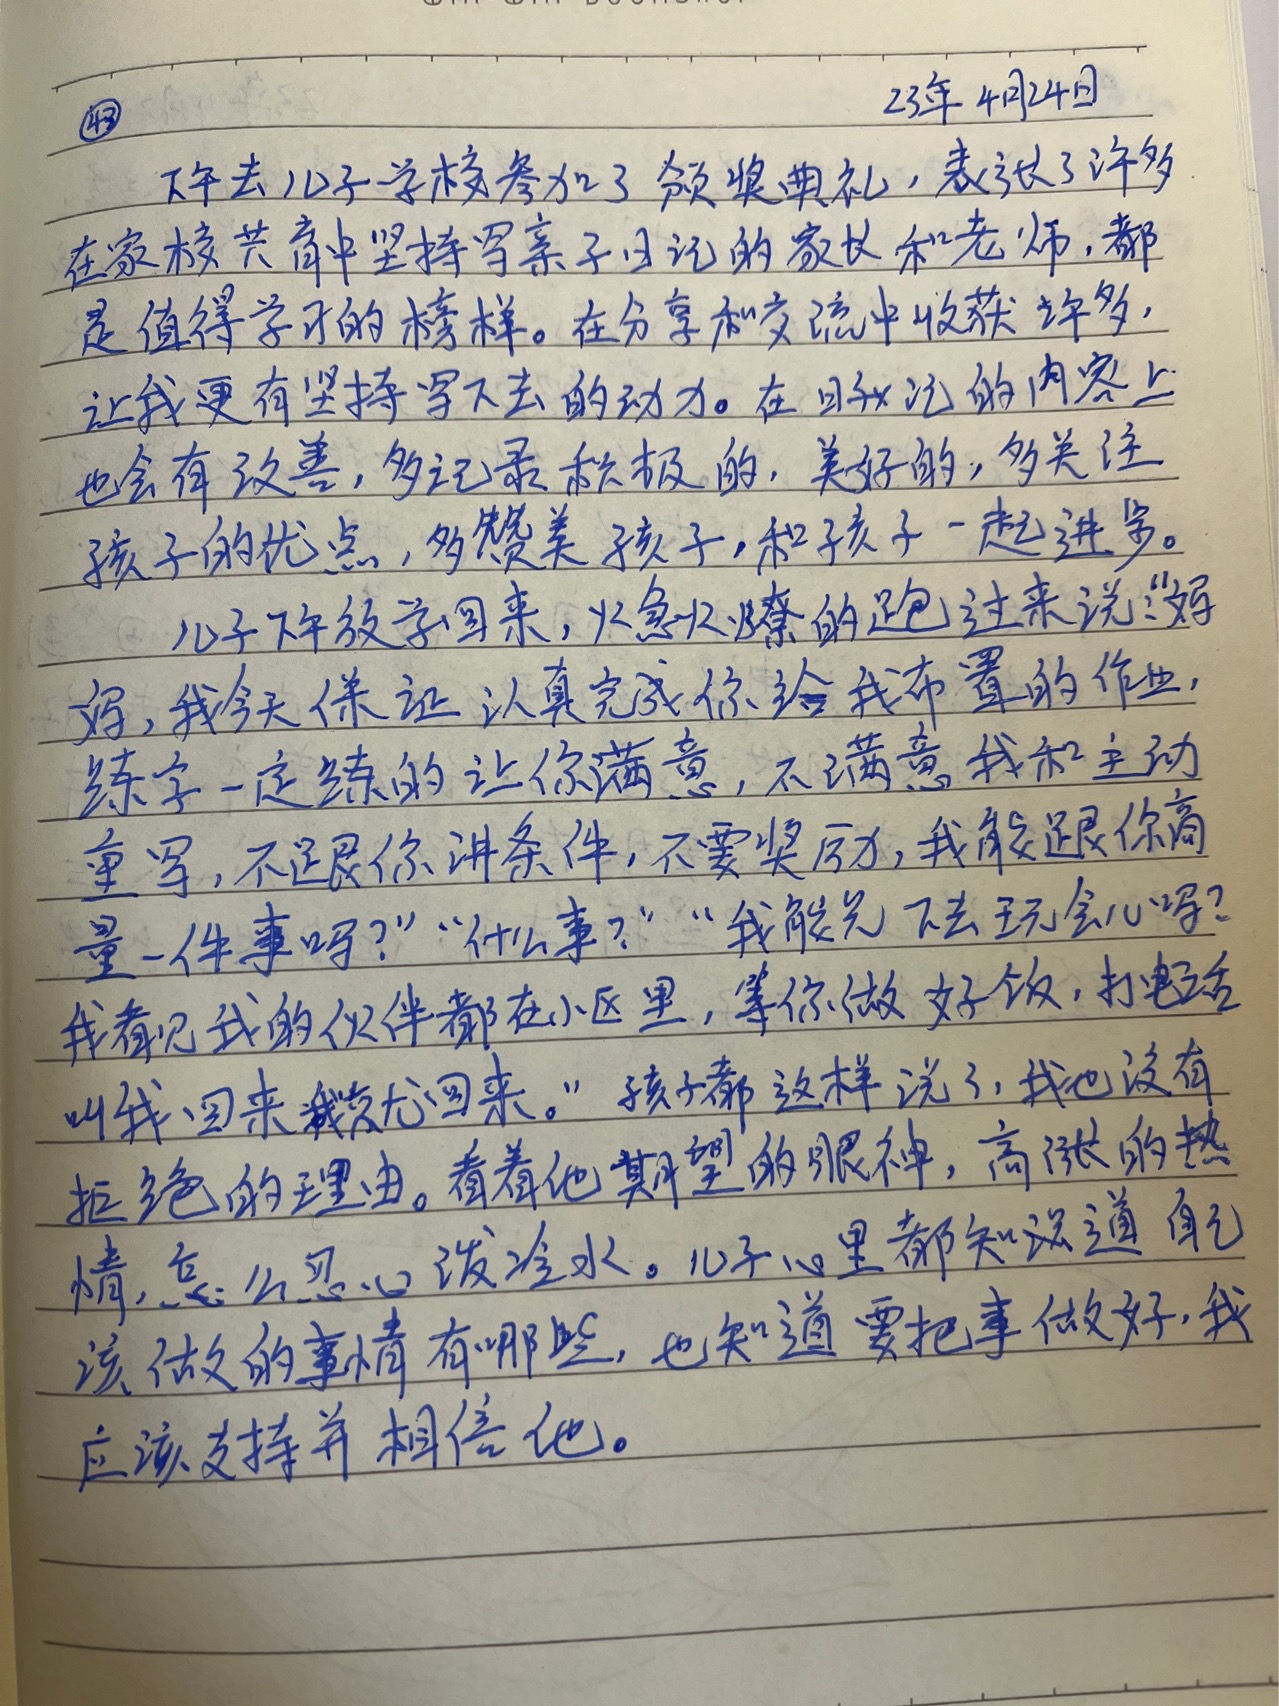 ㊸ 23年4月24日
下午去儿子学校参加了颁奖典礼，表张了许多
在家校共育中坚持写亲子日记的家长和老师，都
是值得学习的榜样。在分享和交流中收获许多，
让我更有坚持写下去的动力。在日记的内容上
也会有改善，多记录积极的，美好的，多关注
孩子的优点，多赞美孩子，和孩子一起进步。
儿子下午放学回来，火急火燎的跑过来说："妈
妈，我今天保证认真完成你给我布置的作业，
练字一定练的让你满意，不满意我和主动
重写，不跟你讲条件，不要奖励，我能跟你商
量一件事吗？""什么事？""我能先下去玩会儿吗？
我看见我的伙伴都在小区里，等你做好饭，打电话
叫我回来我就回来。"孩子都这样说了，我也没有
拒绝的理由。看着他期望的眼神，高涨的热
情，怎么忍心泼冷水。儿子心里都知道自己
该做的事情有哪些，也知道要把事做好，我
应该支持并相信他。